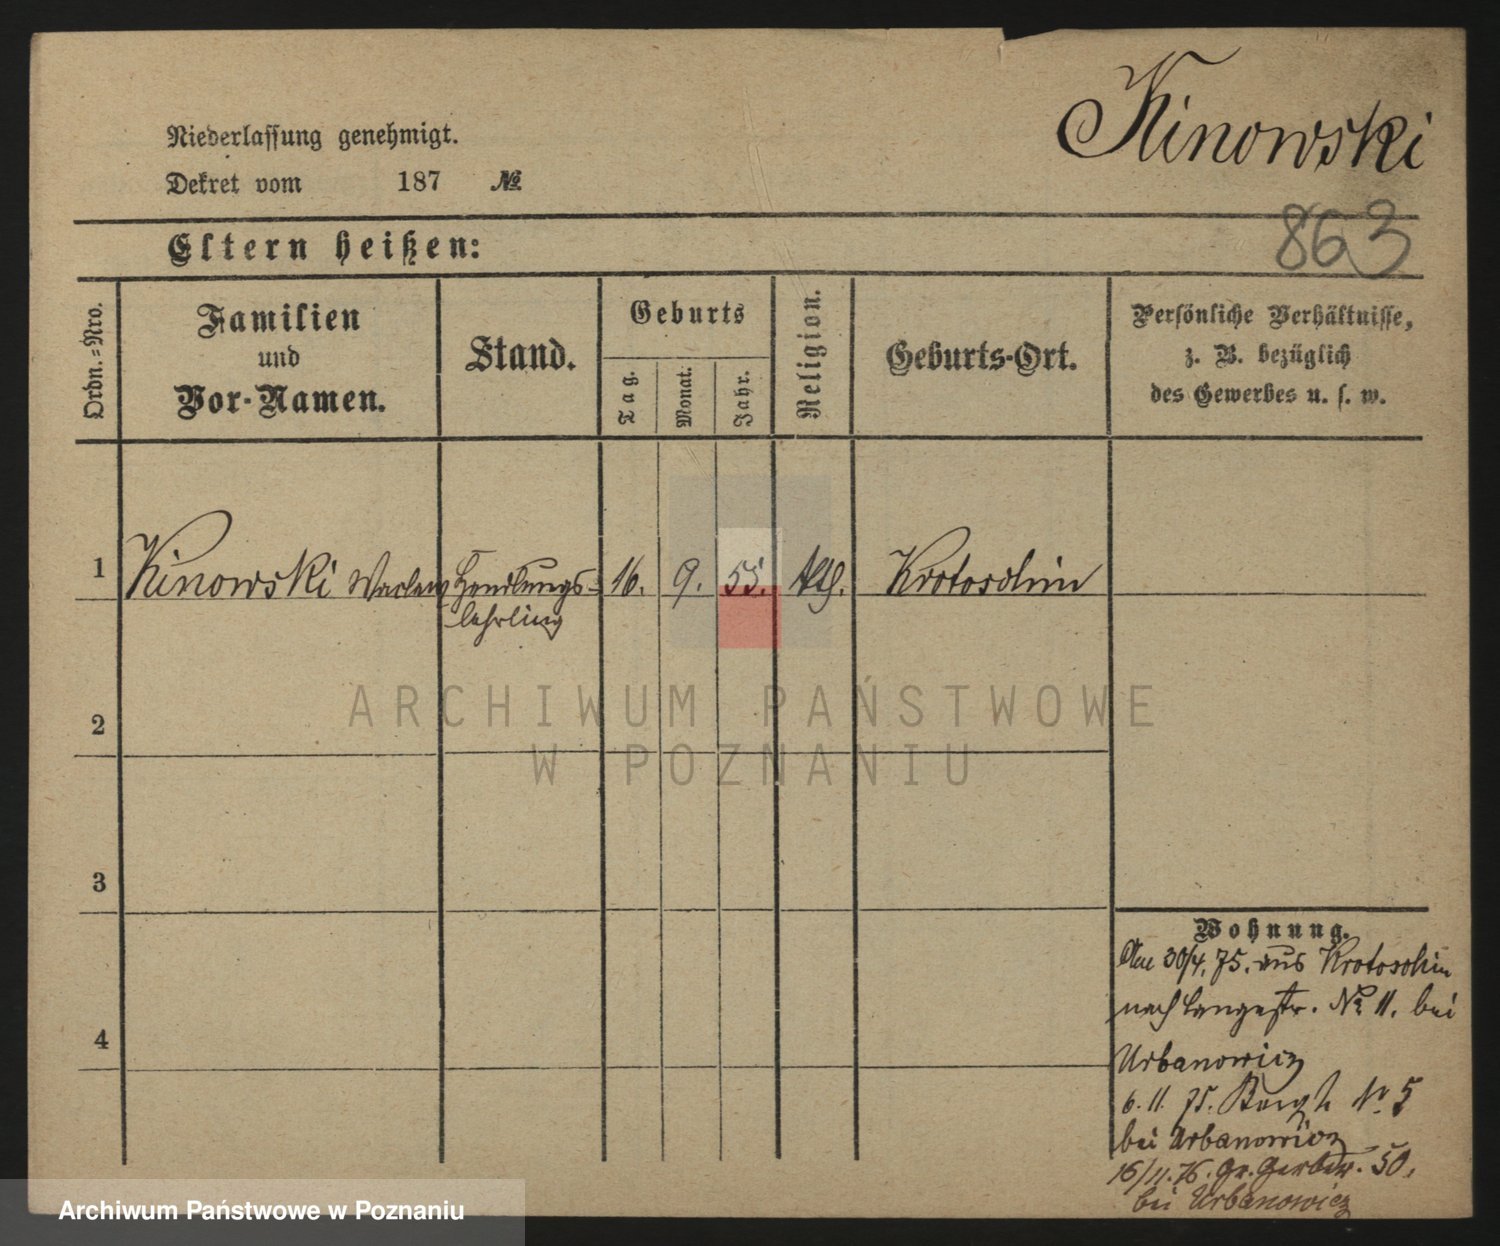 Kinowski
Niederlassung genehmigt.
Dekret vom 187 №
863
Eltern heißen:
Ordn.-Nro.
Familien
und
Vor-Namen.
Stand.
Geburts
Tag.
Monat.
Jahr.
Religion.
Geburts-Ort.
Persönliche Verhältnisse,
z. B. bezüglich
des Gewerbes u. s. w.
1 Kinowski Handlungs- 16. 9. 55. kth. Krotoschin
lehrling
2
3
4
Wohnung.
30/4. 75. aus Krotoschin
nach Langestr. № 11. bei
Urbanowicz
6. 11. 75. № 5
bei Urbanowicz
16/11. 76. Gr. Gerberstr. 50.
bei Urbanowicz
ARCHIWUM PAŃSTWOWE
W POZNANIU
Archiwum Państwowe w Poznaniu